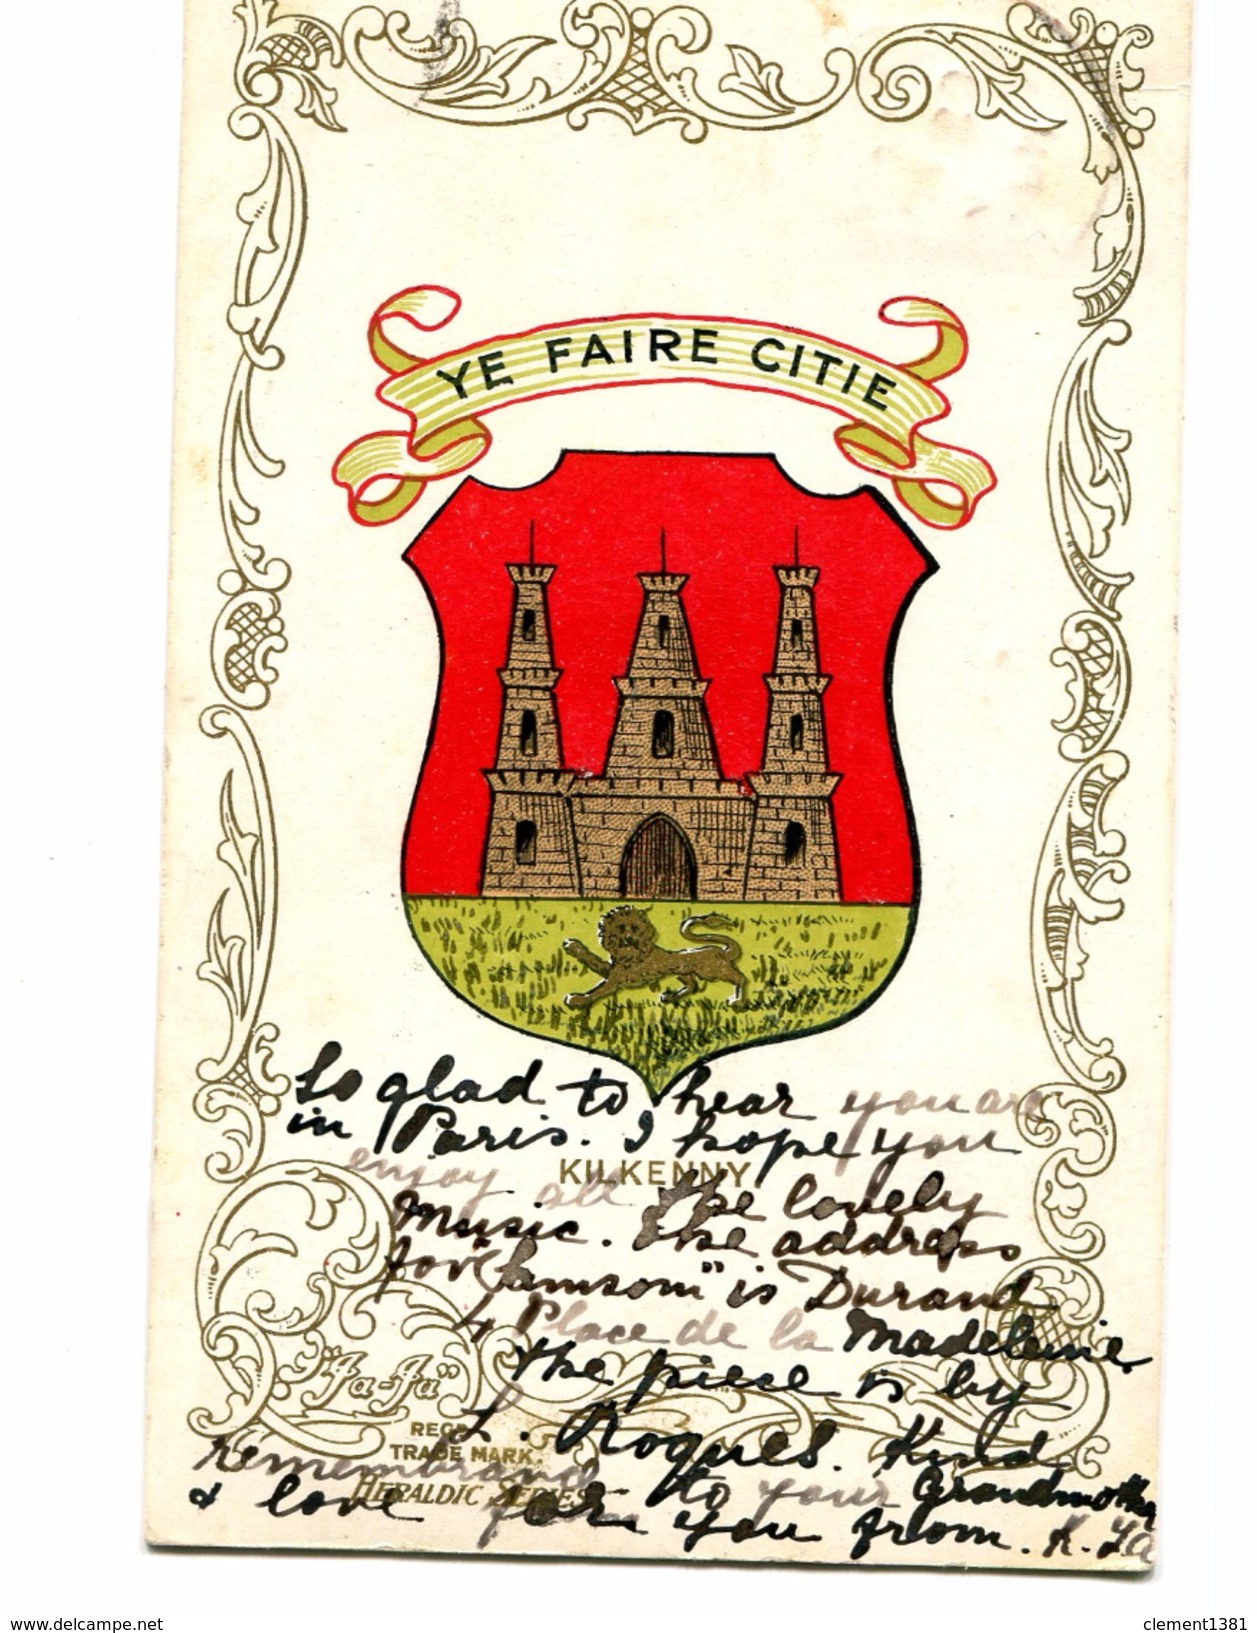 YE FAIRE CITIE
So glad to hear you are
in Paris. I hope you
KILKENNY
enjoy all the lovely
music. The address
for "Samson" is Durand
4 Place de la Madeleine
the piece is by
"Ja-Ja"
L. Roques. Kind
REGD
TRADE MARK.
remembrance to your Grandmother
HERALDIC SERIES
& love for you from. K.
www.delcampe.net
clement1381